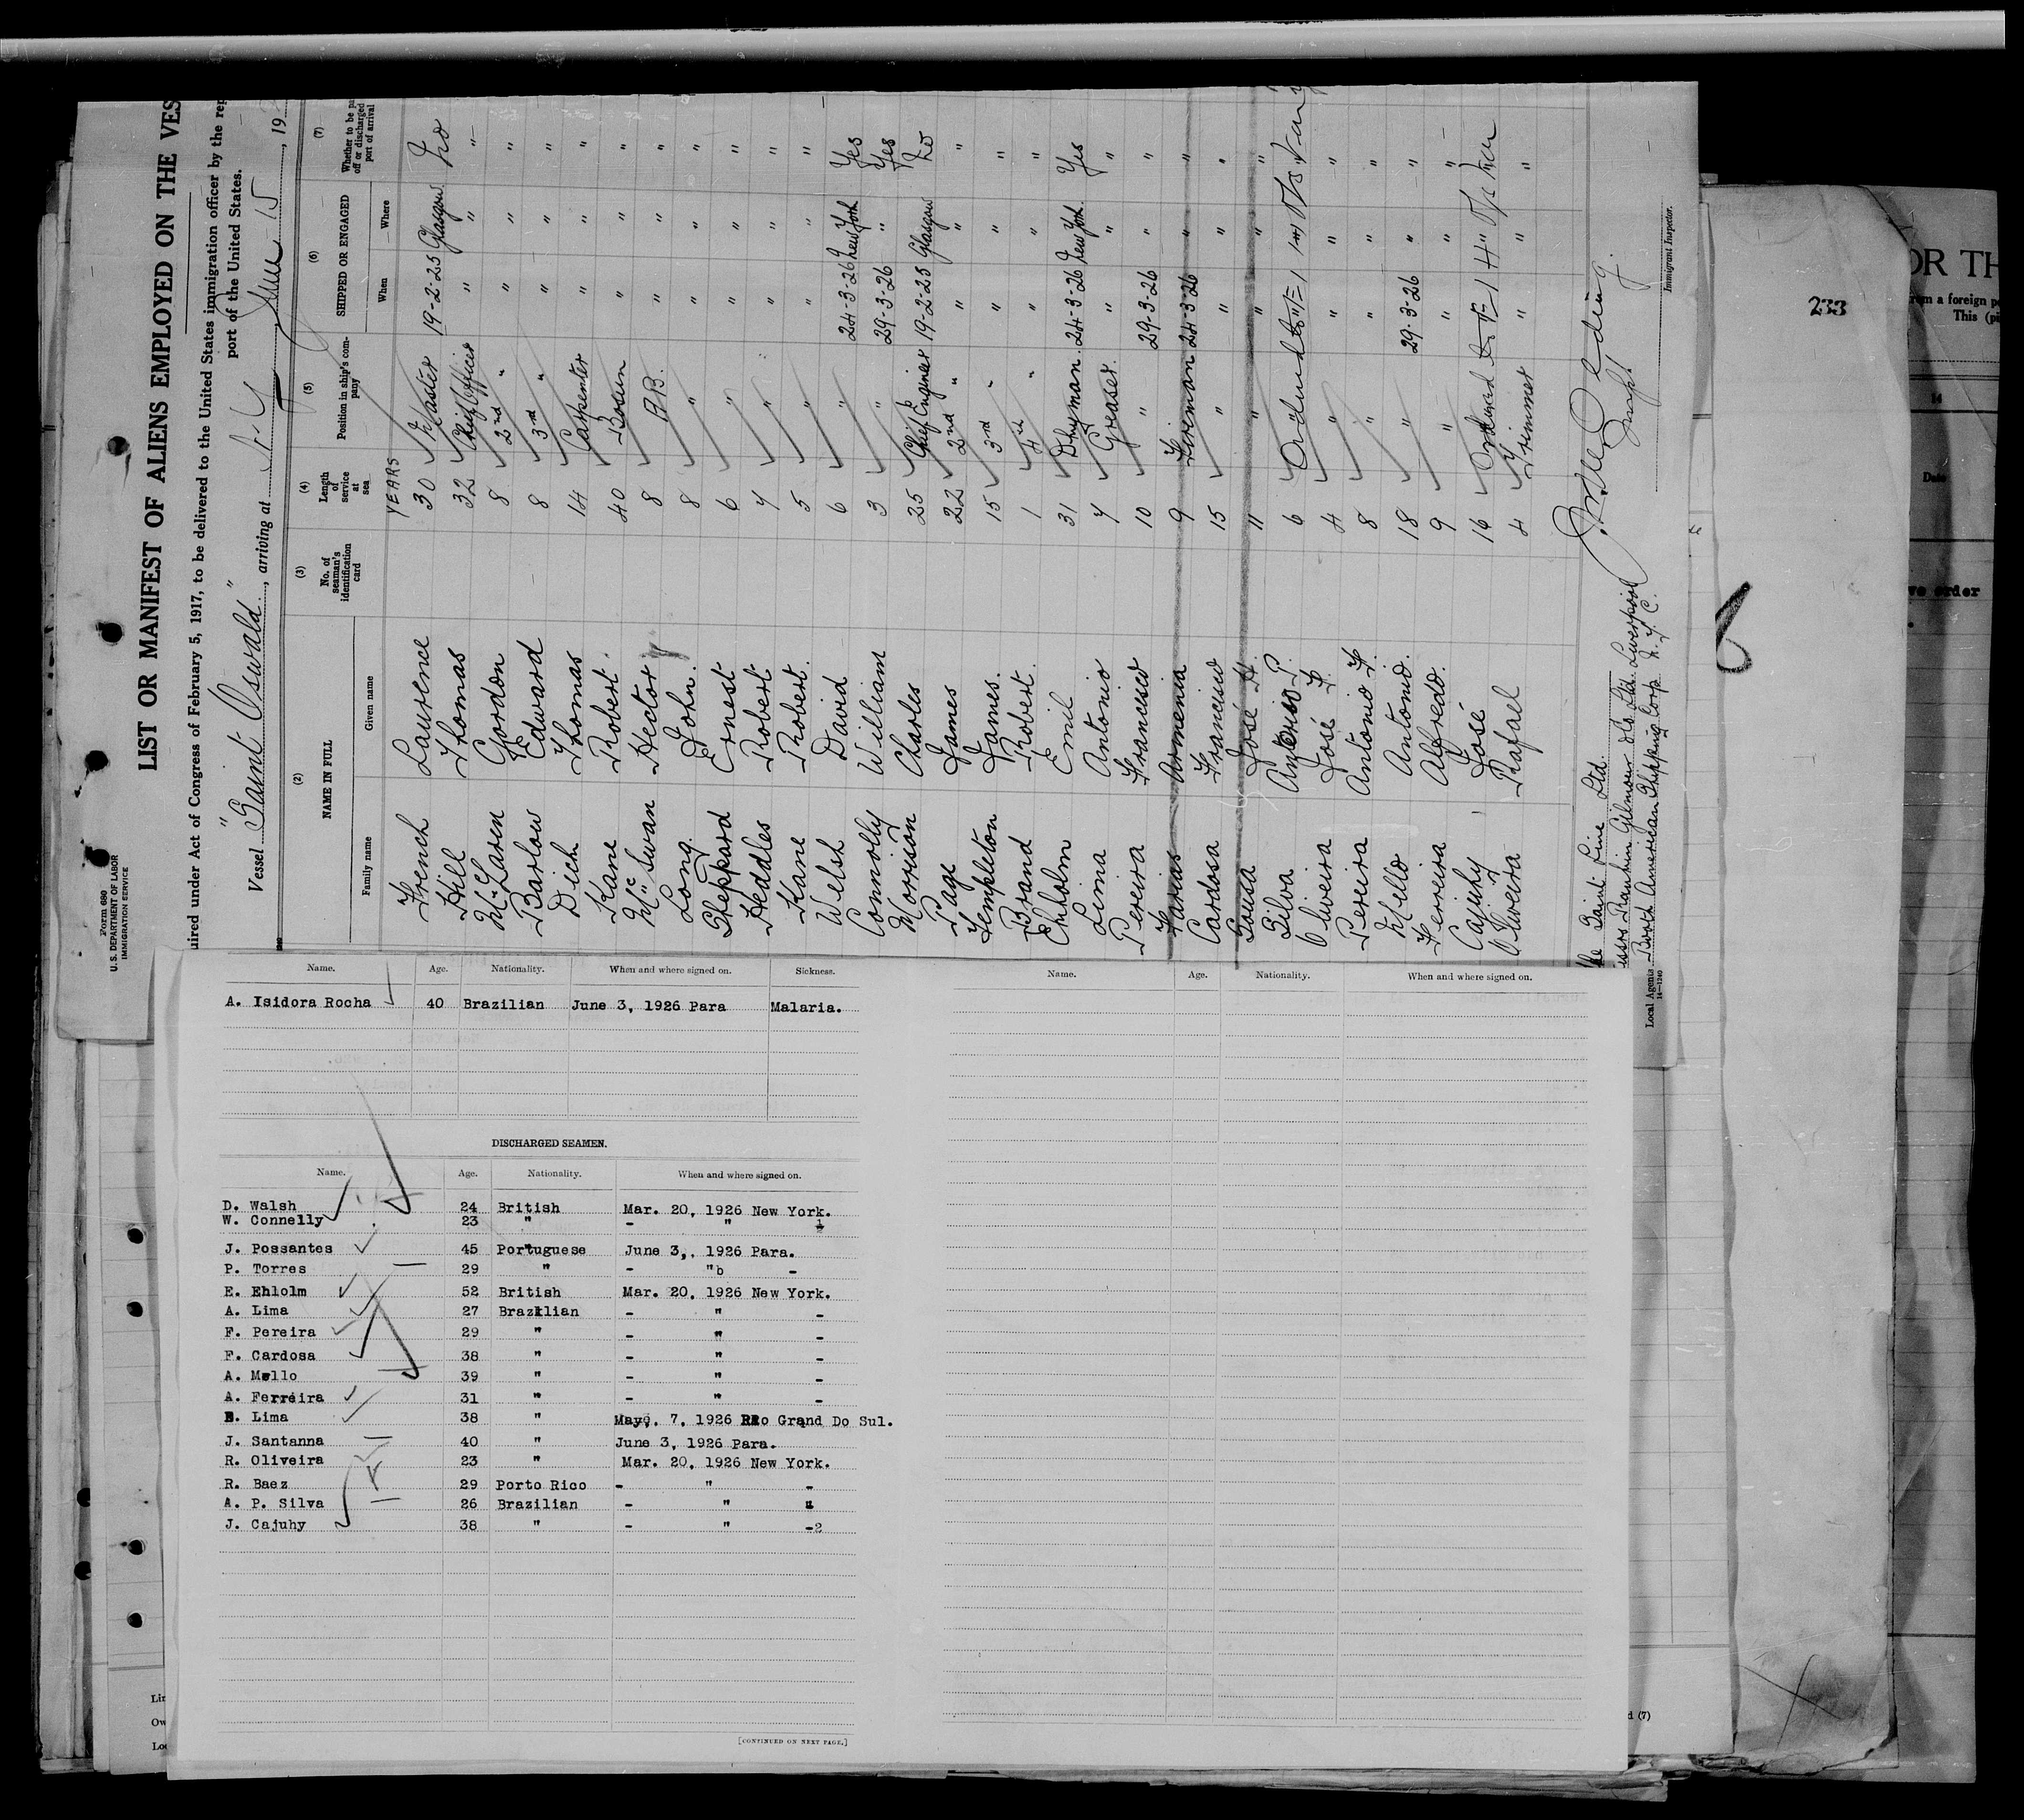 LIST OR MANIFEST OF ALIENS EMPLOYED ON THE VES
uired under Act of Congress of February 5, 1917, to be delivered to the United States immigration officer by the rep
port of the United States.
Vessel "Saint Oswald", arriving at N. Y June 15, 19
Form 680
U.S. DEPARTMENT OF LABOR
IMMIGRATION SERVICE
(2) (3) (4) (5) (6) (7)
NAME IN FULL No. of seaman's identification card Length of service at sea Position in ship's company SHIPPED OR ENGAGED Whether to be pa off or discharged port of arrival
Family name Given name When Where
YEARS
French Laurence 30 Master 19-2-25 Glasgow No
Hill Thomas 32 Chief Officer " " "
McLaren Gordon 8 2nd " " " "
Barlow Edward 8 3rd " " " "
Dick Thomas 14 Carpenter " " "
Kane Robert 40 Bosun " " "
McSwan Hector 8 A.B. " " "
Long John 8 " " " "
Sheppard Ernest 6 " " " "
Heddles Robert 7 " " " "
Kane Robert 5 " " " "
Welsh David 6 " 24-3-26 New York Yes
Connolly William 3 " 29-3-26 " Yes
Morrison Charles 25 Chief Engineer 19-2-25 Glasgow No
Page James 22 2nd " " " "
Templeton James 15 3rd " " " "
Brand Robert 1 4th " " " "
Ehholm Emil 31 Dkyman 24-3-26 New York Yes
Lima Antonio 7 Greaser " " "
Pereira Francisco 10 " 29-3-26 " "
Farias Armenia 9 Fireman 24-3-26 " "
Cardosa Francisco 15 " " " "
Sousa José H. 11 " " " "
Silva Antonio P. 6
Oliveira José F. 4 " " " "
Pereira Antonio F. 8 " " " "
Mello Antonio. 18 " 29-3-26 " "
Ferreira Alfredo. 9 " " " "
Cajuhy José 16
Oliveira Rafael 4 Trimmer " " "
The Saint Line Ltd.
Rankin Gilmour & Co Ltd. Liverpool
Local Agents Booth American Shipping Corp N.Y.C.
14—1240
Immigrant Inspector.
Name. Age. Nationality. When and where signed on. Sickness.
A. Isidora Rocha 40 Brazilian June 3, 1926 Para Malaria.
DISCHARGED SEAMEN.
Name. Age. Nationality. When and where signed on.
D. Walsh 24 British Mar. 20, 1926 New York.
W. Connelly 23 " - "
J. Possantes 45 Portuguese June 3,. 1926 Para.
P. Torres 29 " - "b -
E. Ehlolm 52 British Mar. 20, 1926 New York.
A. Lima 27 Brazilian - " -
F. Pereira 29 " - " -
F. Cardosa 38 " - " -
A. Mello 39 " - " -
A. Ferreira 31 " - " -
Lima 38 " May. 7, 1926 Rio Grand Do Sul.
J. Santanna 40 " June 3, 1926 Para.
R. Oliveira 23 " Mar. 20, 1926 New York.
R. Baez 29 Porto Rico - " -
A. P. Silva 26 Brazilian - "
J. Cajuhy 38 " - " -2
[CONTINUED ON NEXT PAGE.]
Name. Age. Nationality. When and where signed on.
233
OR TH
om a foreign p
This (pi
14
Date
ve order
Lin
Ow
Loc
d (7)